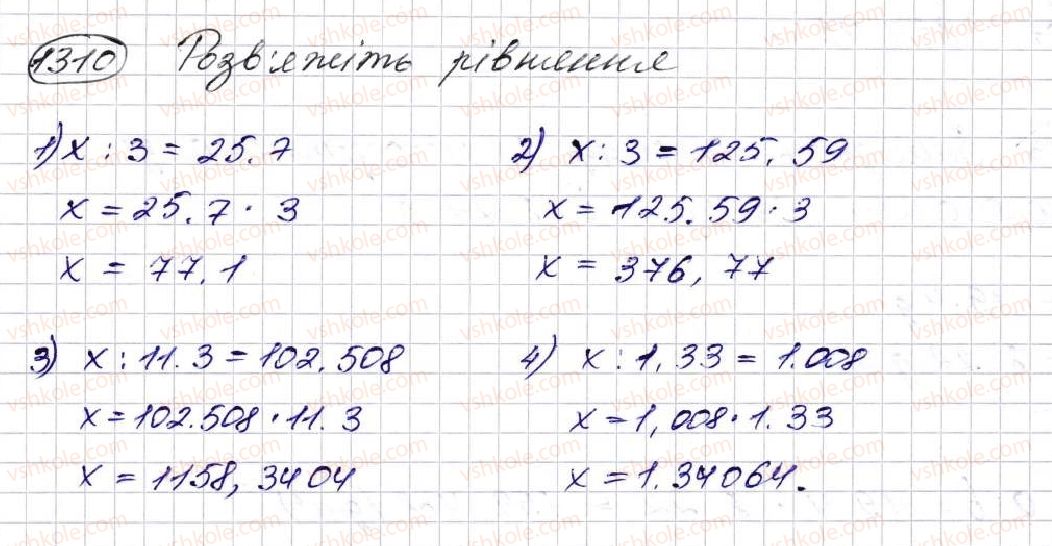 1310 Розв'яжіть рівняння
1) x : 3 = 25.7
x = 25.7 · 3
x = 77.1
2) x : 3 = 125.59
x = 125.59 · 3
x = 376,77
3) x : 11.3 = 102.508
x = 102.508 · 11.3
x = 1158,3404
4) x : 1,33 = 1.008
x = 1,008 · 1.33
x = 1.34064.